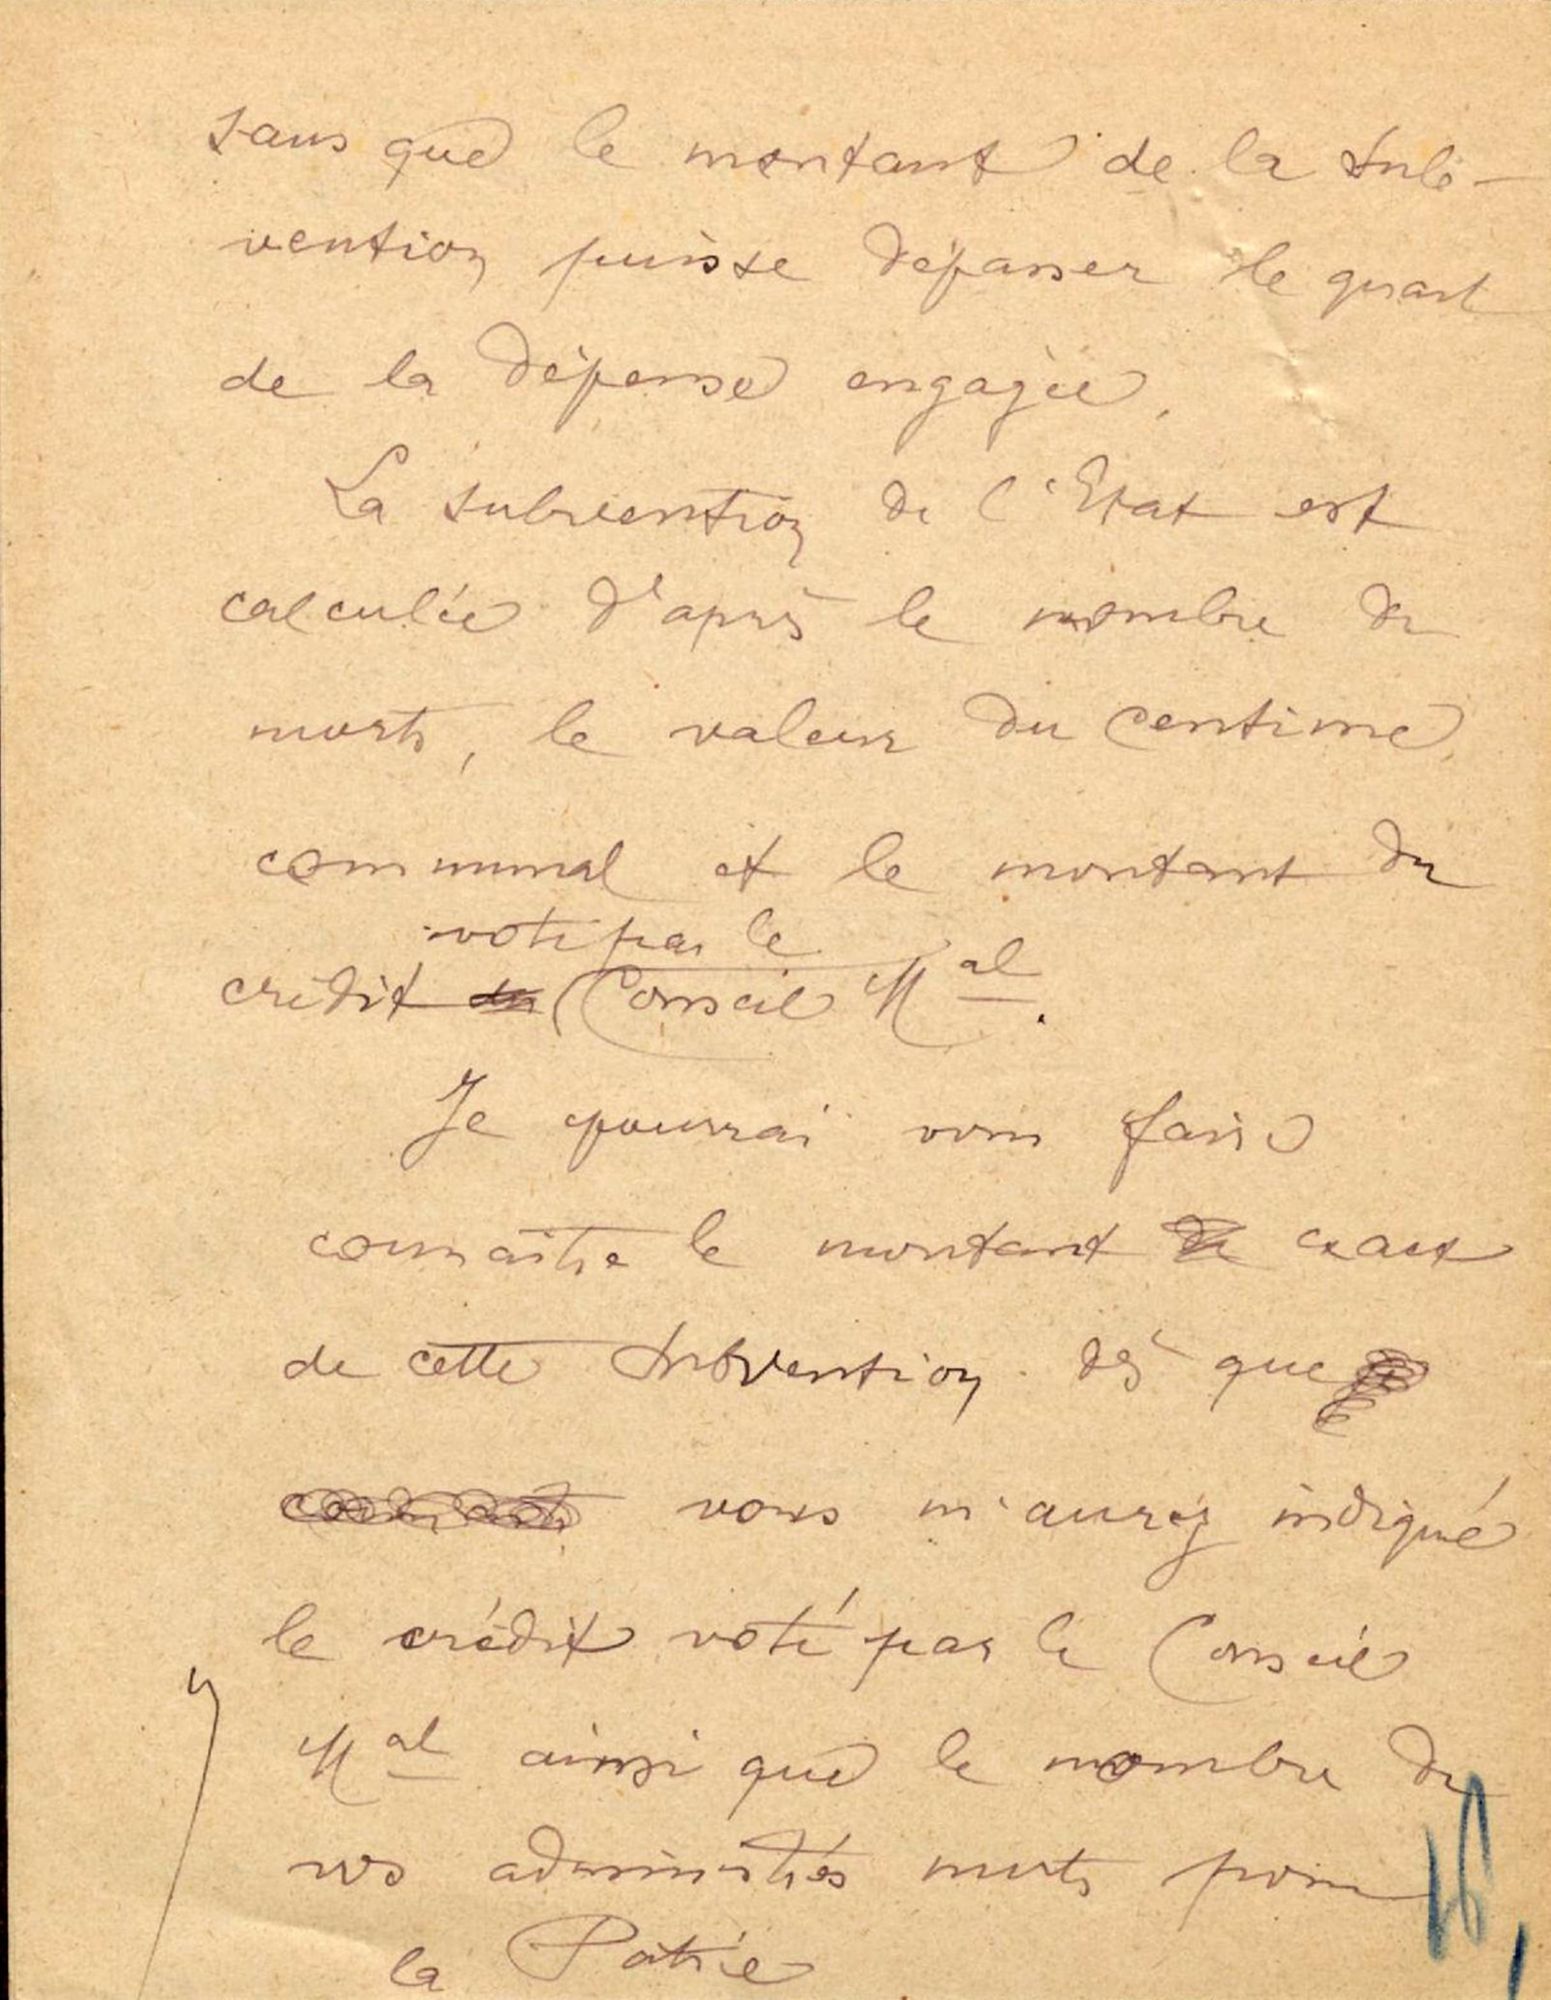 sans que le montant de la sub-
vention puisse dépasser le quart
de la dépense engagée.
La subvention de l'Etat est
calculée d'après le nombre de
morts, le valeur du centime
communal et le montant du
voté par le
crédit du Conseil Mal.
Je pourrai vous faire
connaître le montant de exact
de cette subvention dès que
vous m'aurez indiqué
le crédit voté par le Conseil
Mal ainsi que le nombre de
vos administrés morts pour
la Patrie